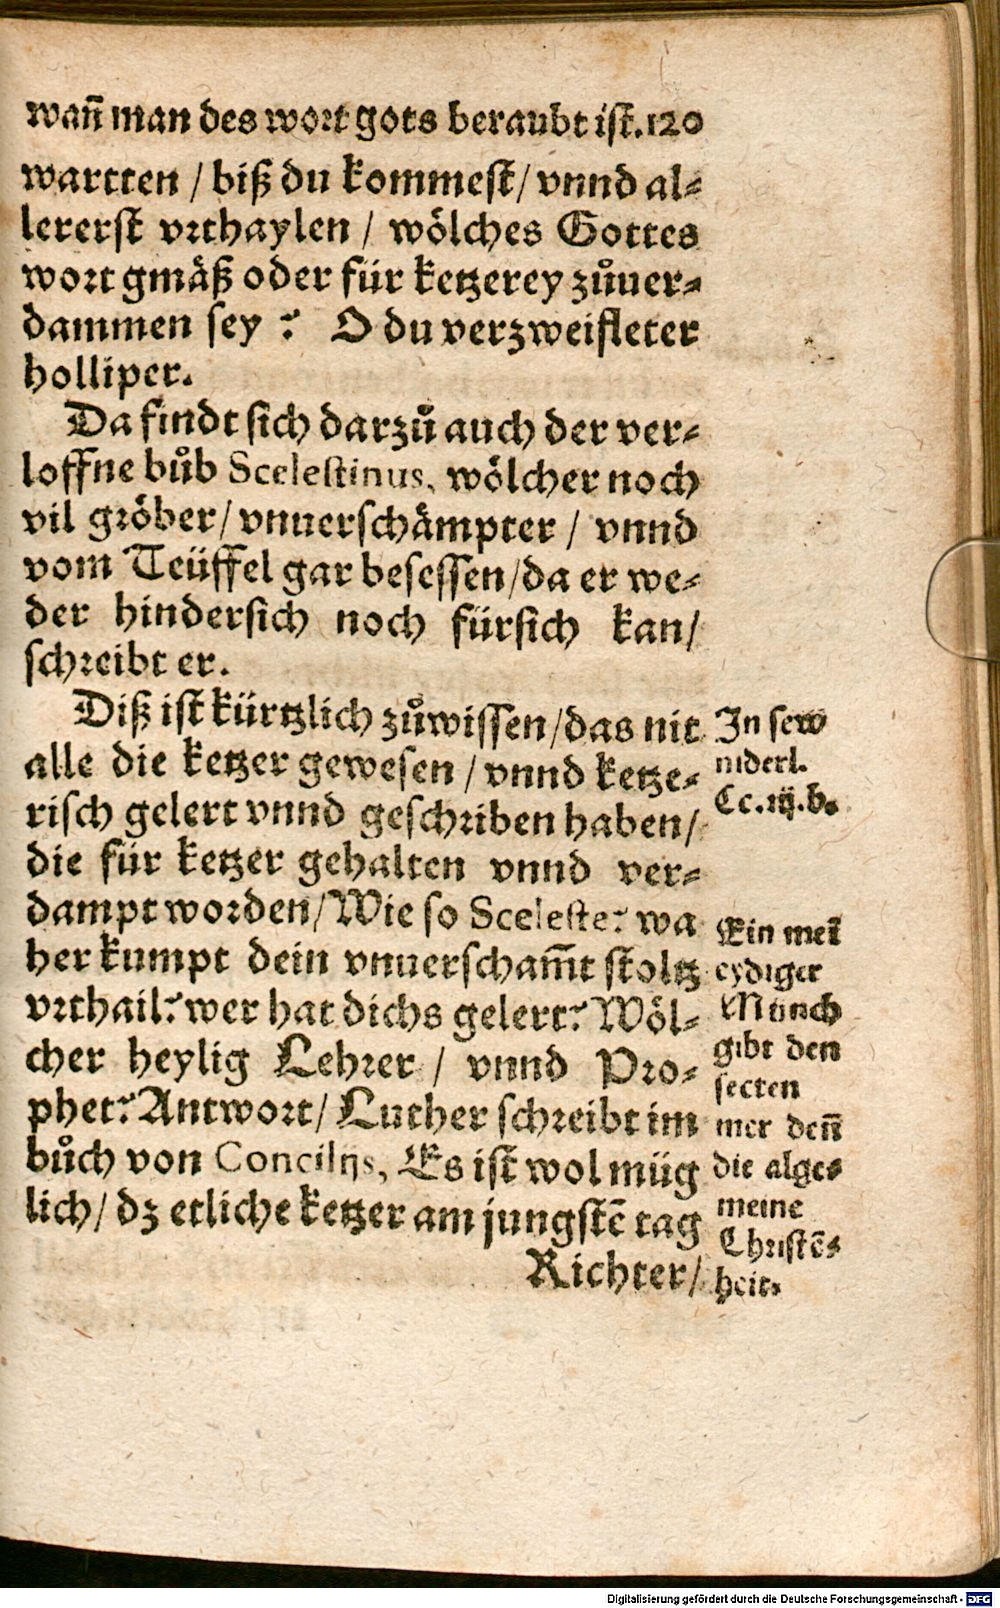 wañ man des wort gots beraubt ist. 120
wartten / biß du kommest / vnnd al⸗
lererst vrthaylen / wölches Gottes
wort gmäß oder für ketzerey zůuer⸗
dammen sey ? O du verzweifleter
holliper.
Da findt sich darzů auch der ver⸗
loffne bůb Scelestinus, wölcher noch
vil gröber / vnuerschämpter / vnnd
vom Teüffel gar besessen / da er we⸗
der hindersich noch fürsich kan /
schreibt er.
Diß ist kürtzlich zůwissen / das nit
alle die ketzer gewesen / vnnd ketze⸗
risch gelert vnnd geschriben haben /
die für ketzer gehalten vnnd ver⸗
dampt worden / Wie so Sceleste? wa
her kumpt dein vnuerscham̃t stoltz
vrthail? wer hat dichs gelert? Wöl⸗
cher heylig Lehrer / vnnd Pro⸗
phet? Antwort / Luther schreibt im
bůch von Concilijs, Es ist wol müg
lich / dz etliche ketzer am jungstē tag
Richter /
In sew
niderl.
Cc. iij. b.
Ein mei
eydiger
Münch
gibt den
secten
mer deñ
die alge⸗
meine
Christē⸗
heit.
Digitalisierung gefördert durch die Deutsche Forschungsgemeinschaft - DFG